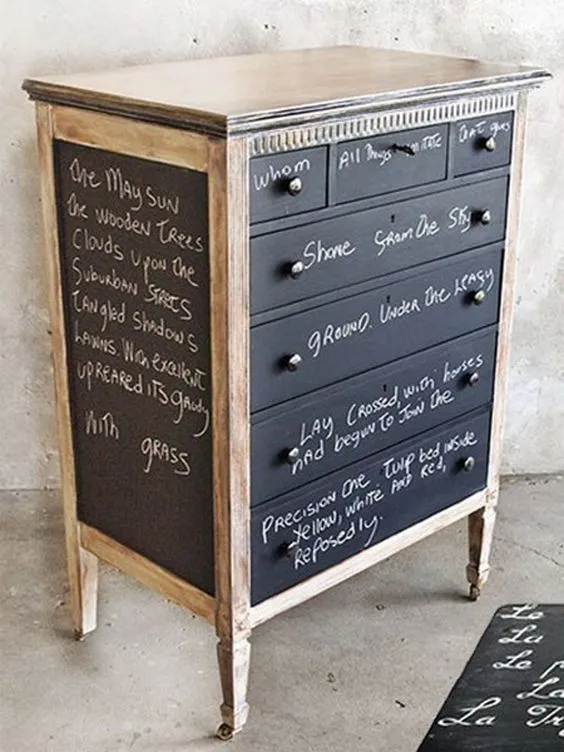 The May Sun
The Wooden Trees
Clouds upon the
Suburban Streets
Tangled Shadows
Lawns. With excellent
upreared its gaudy
With grass
Whom
All Things imitate
That gives
Shone from the Sky
Ground. Under the Leafy
Lay Crossed, with houses
had begun to Join the
Precision the Tulip bed inside
Yellow, white and Red,
Reposedly.
Le
La
Le p
La
La Tr